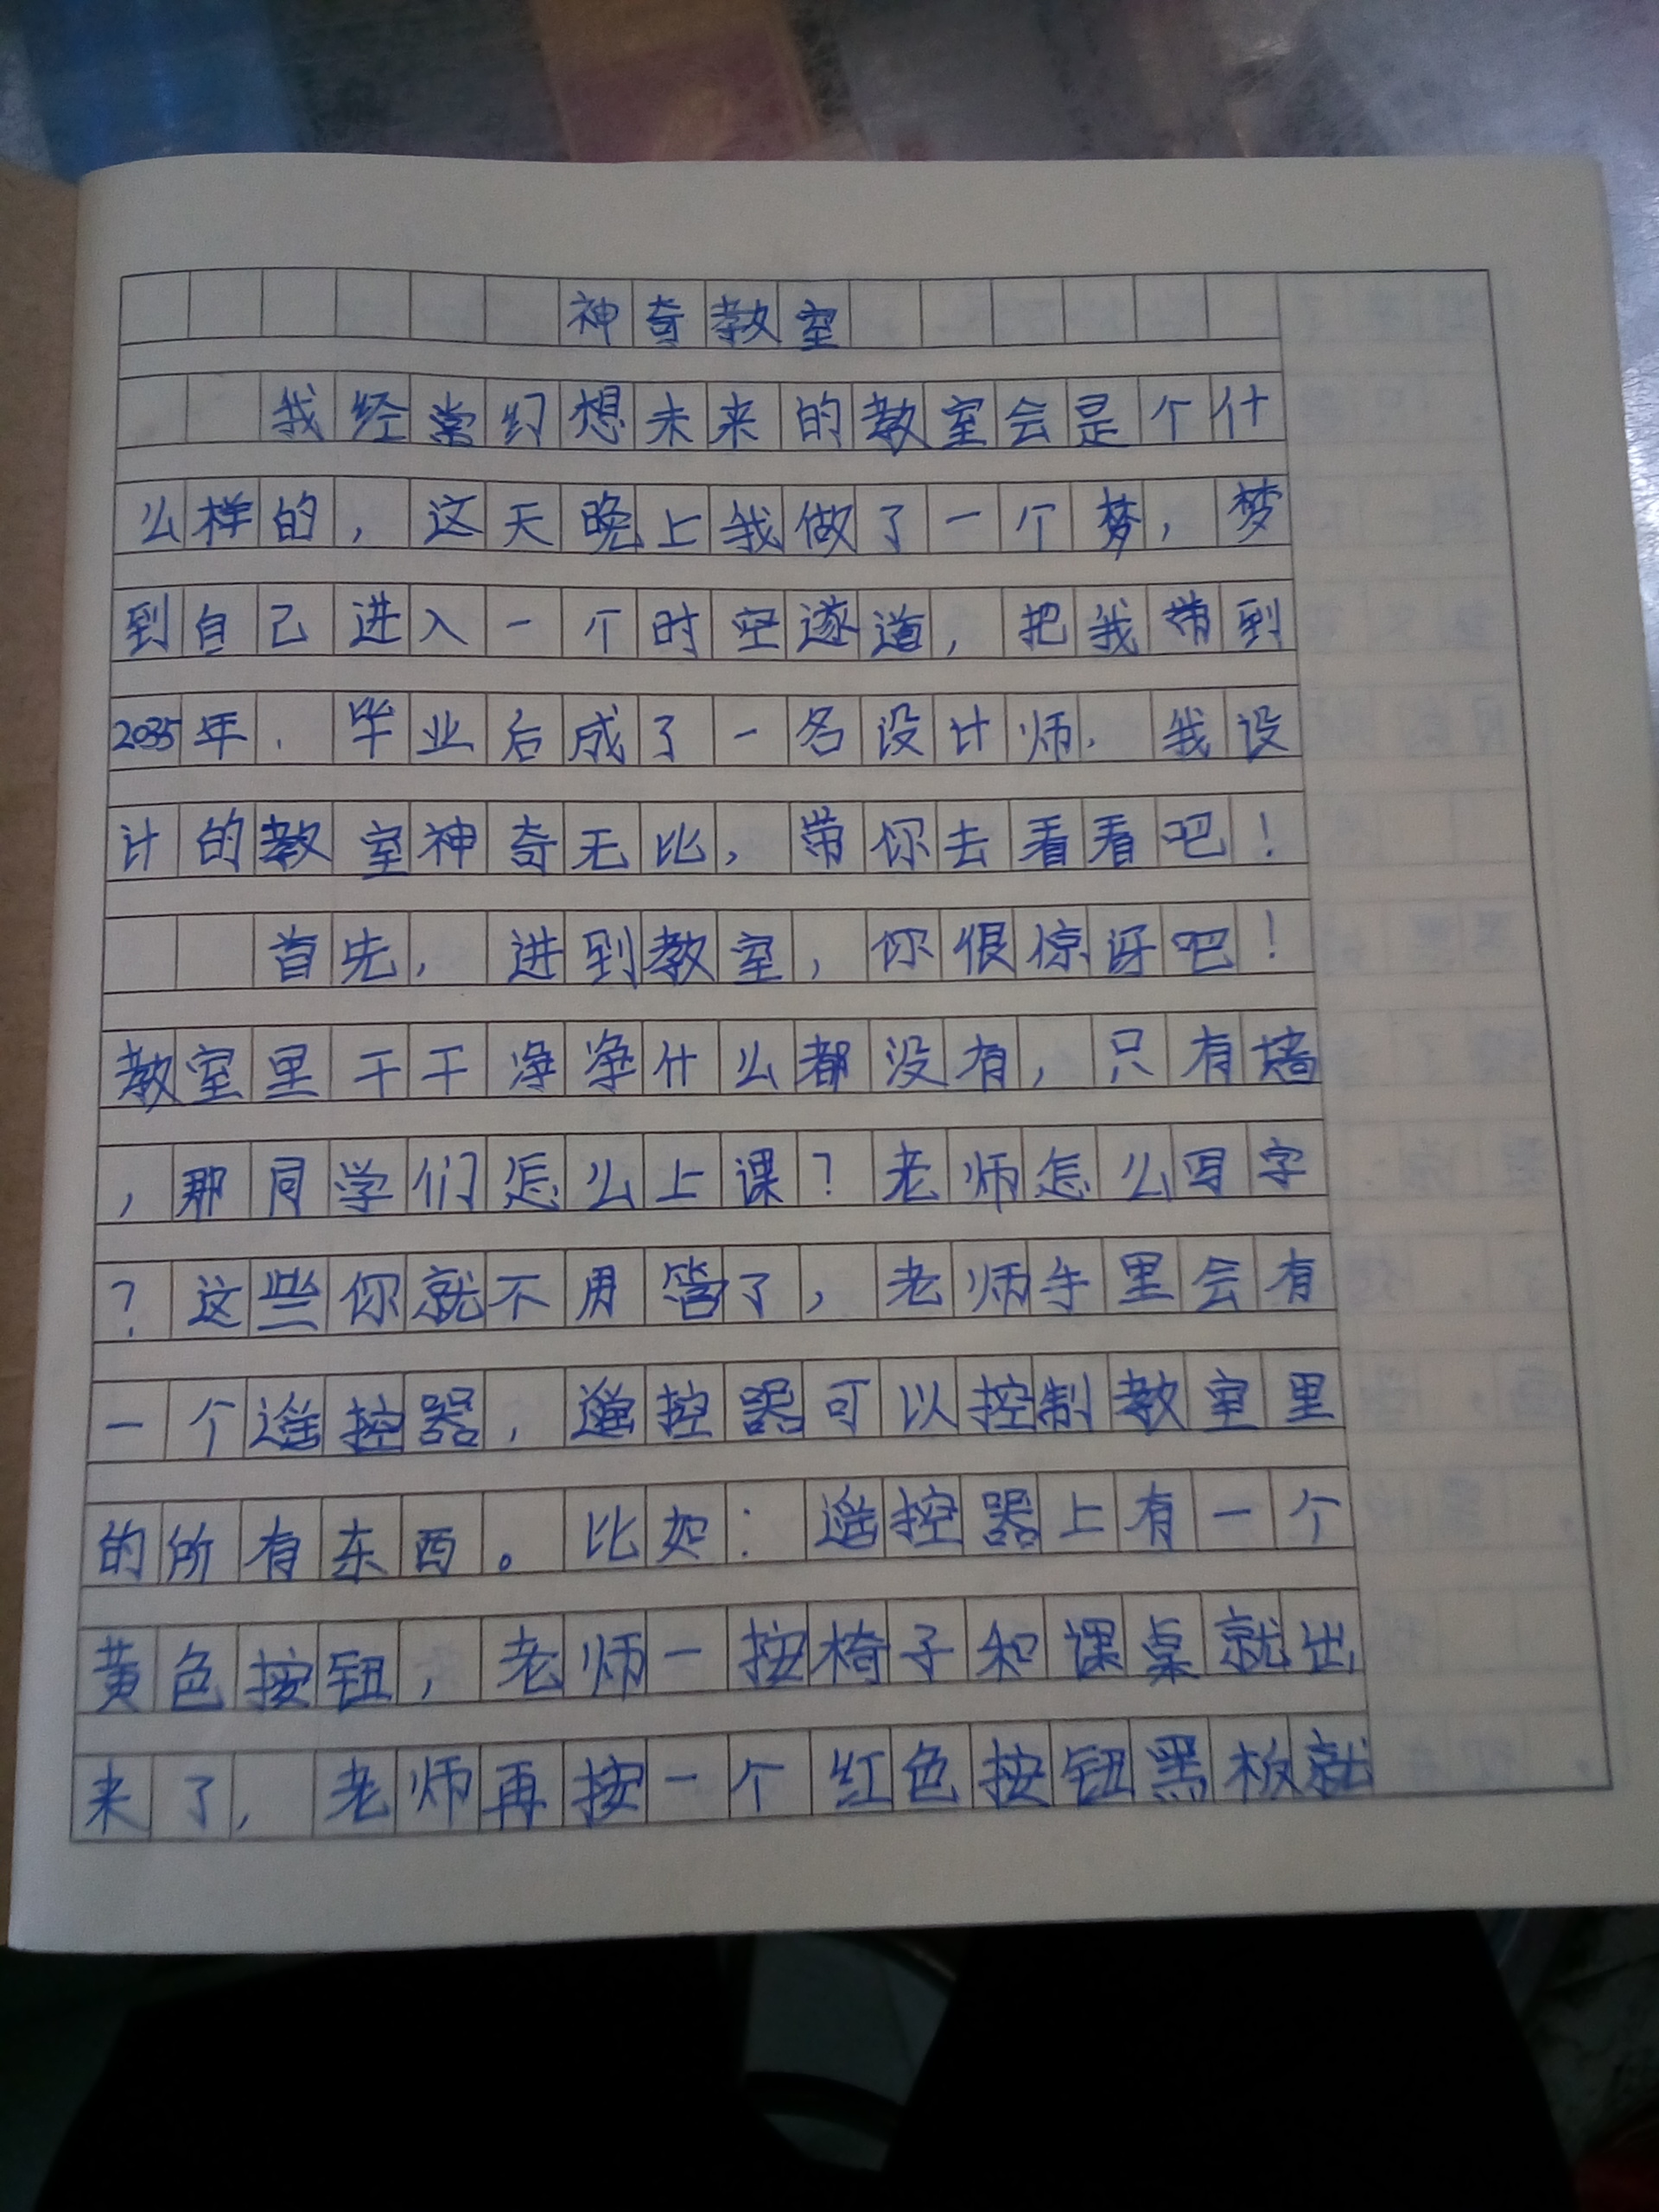 神奇教室
我经常幻想未来的教室会是个什
么样的，这天晚上我做了一个梦，梦
到自己进入一个时空遂道，把我带到
2035年．毕业后成了一名设计师．我设
计的教室神奇无比，带你去看看吧！
首先，进到教室，你很惊讶吧！
教室里干干净净什么都没有，只有墙
，那同学们怎么上课？老师怎么写字
？这些你就不用管了，老师手里会有
一个遥控器，遥控器可以控制教室里
的所有东西。比如：遥控器上有一个
黄色按钮，老师一按椅子和课桌就出
来了，老师再按一个红色按钮黑板就